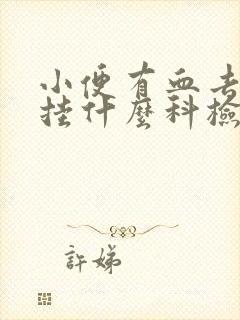 小便有血去
挂什麼科檢
許娣